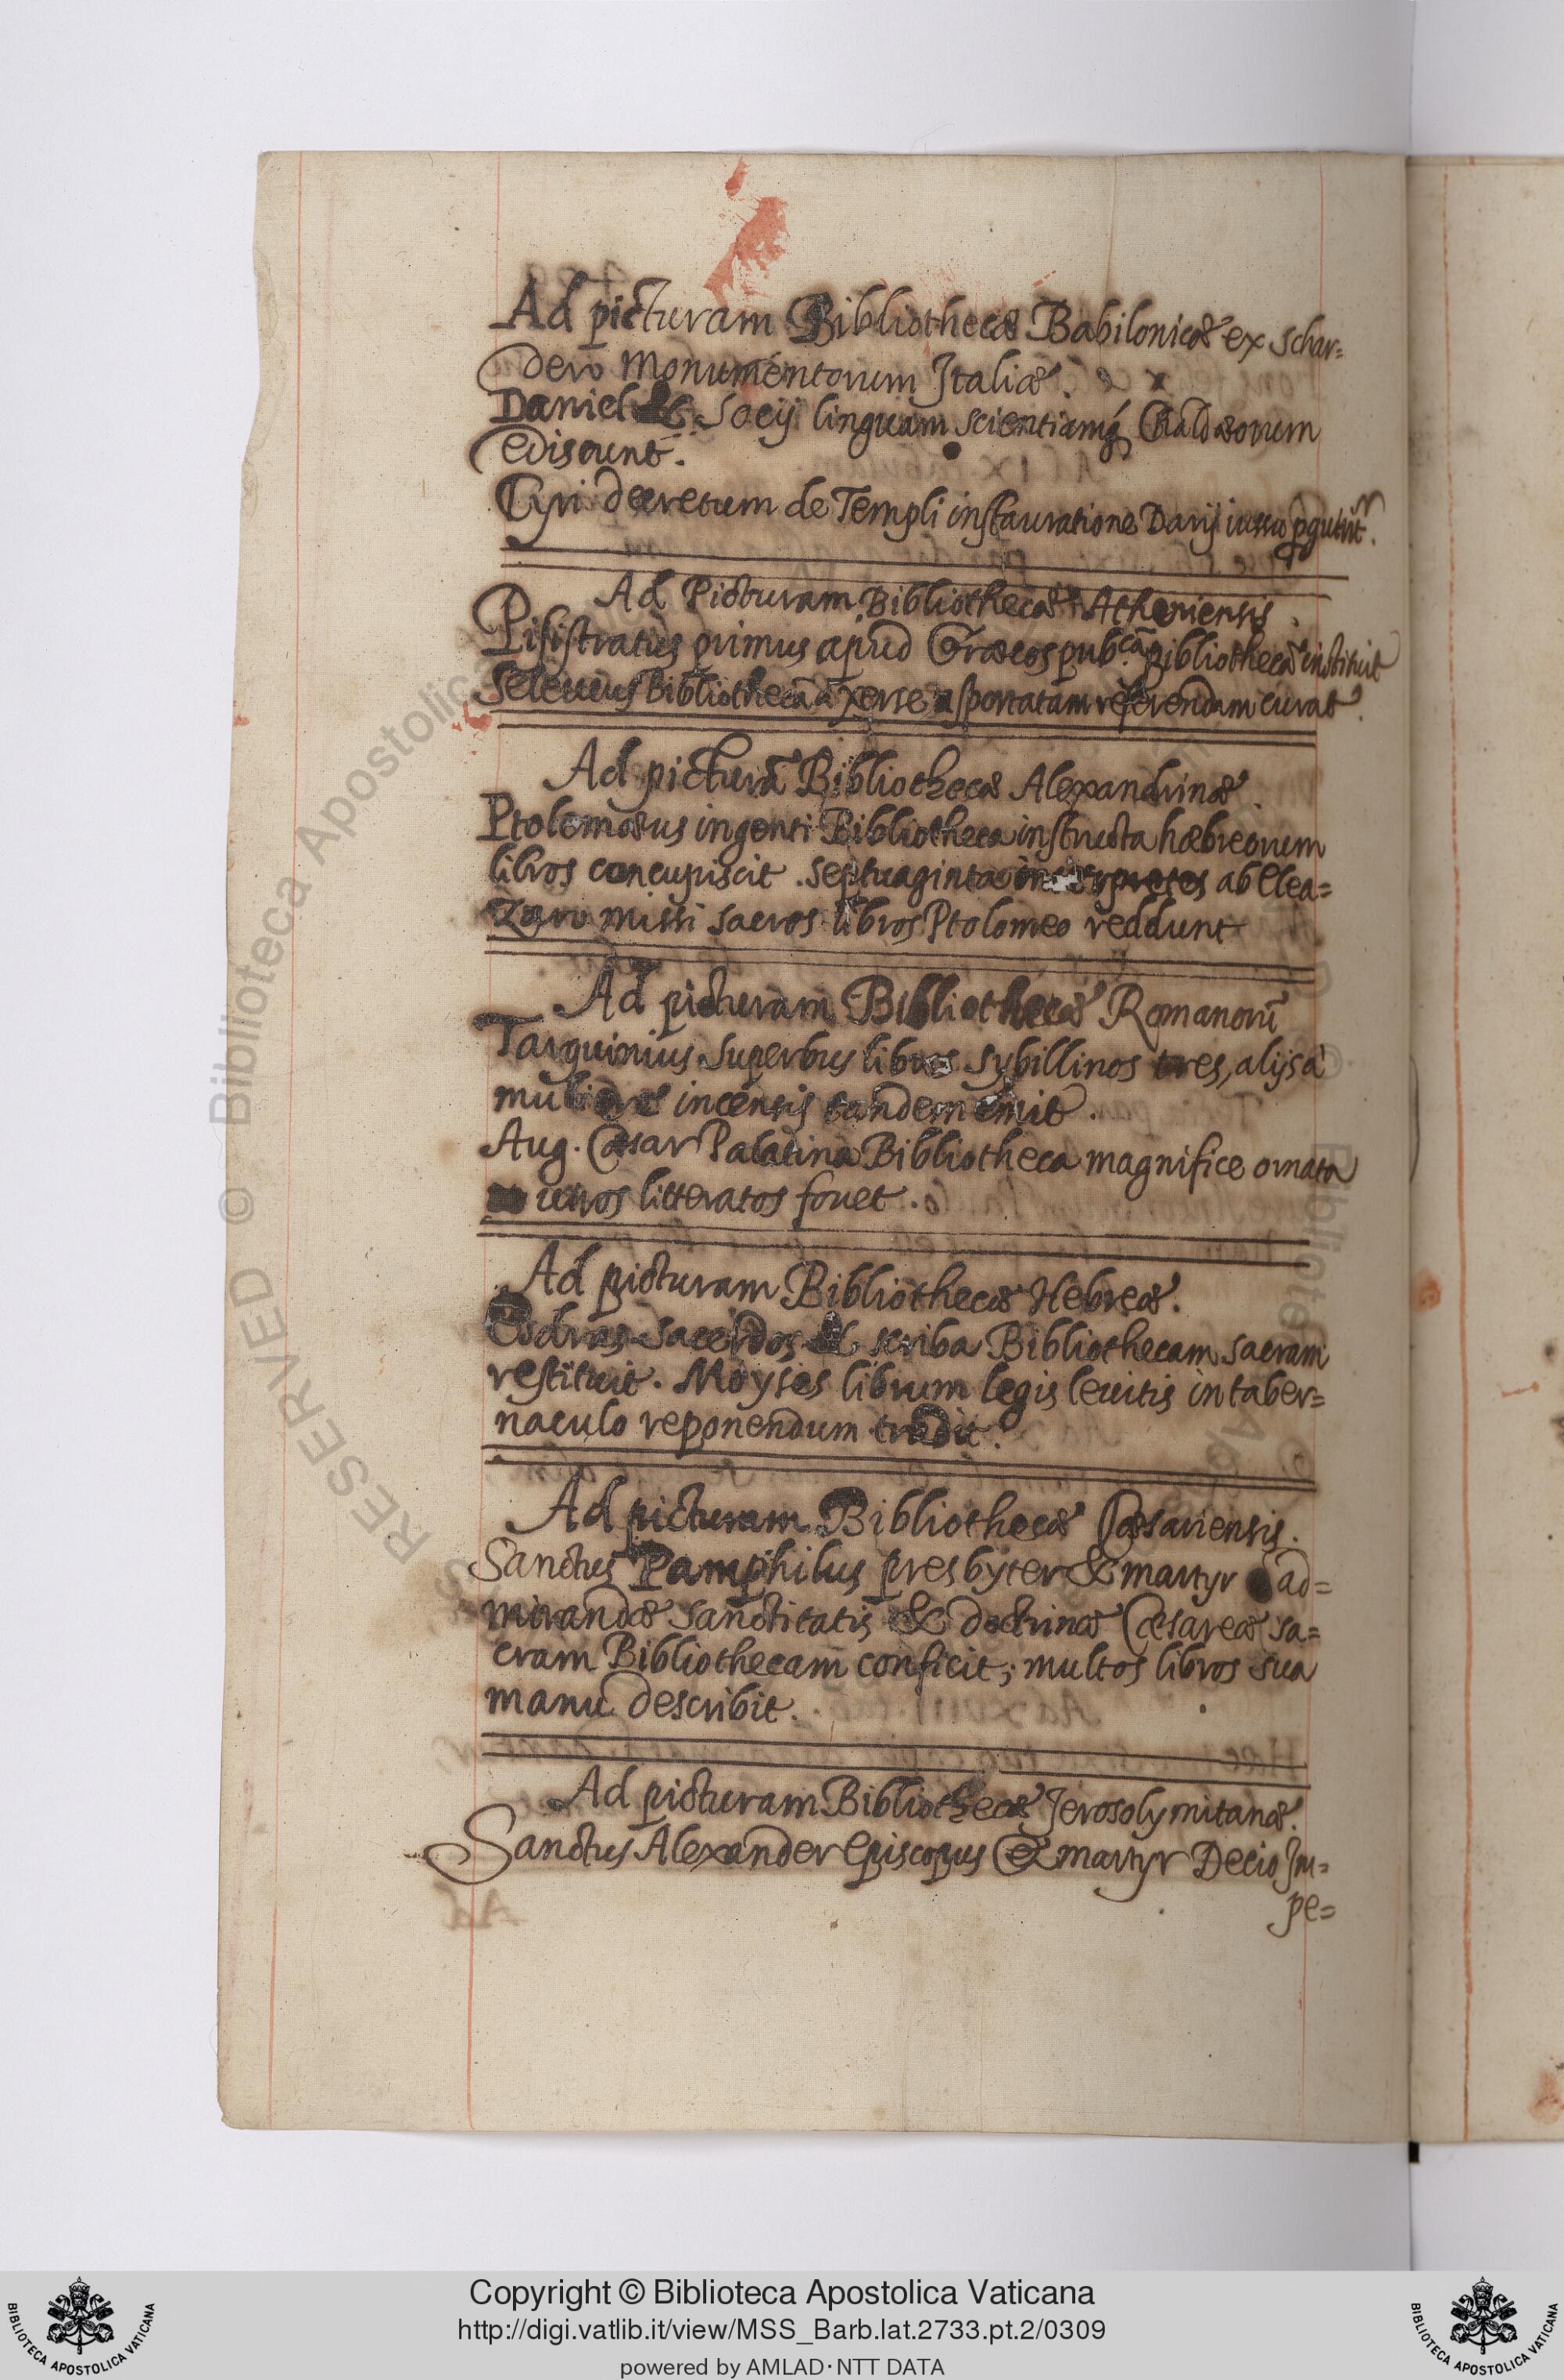 Ad picturam Bibliothecæ Babilonicæ ex schar=
dero Monumentorum Italiæ.
Daniel & Socij linguam scientiamq́ Chaldæorum
ediscunt.
Cyri decretum de Templi instauratione Darij iussu
Ad Picturam Bibliothecæ Atheniensis.
Pisistratus primus apud Græcos pub.cā Bibliothecā instituit
Seleucus Bibliothecā a Xerse asportatam referendam curat.
Ad picturā Bibliothecæ Alexandrinæ.
Ptolemæus ingenti Bibliotheca instructa hæbreorum
libros concupiscit. septuaginta interpretes ab Elea=
zaro missi sacros libros Ptolomeo reddunt
Ad picturam Bibliothecæ Romanorū
Tarquinius Superbus libros Sybillinos tres, alijs à
muliere incensis tandem emit.
Aug. Cæsar Palatina Bibliotheca magnifice ornata
uiros litteratos fouet.
Ad picturam Bibliothecæ Hebreæ.
Esdras sacerdos & scriba Bibliothecam sacram
restituit. Moyses librum legis leuitis in taber=
naculo reponendum tradit.
Ad picturam Bibliothecæ Cæsariensis.
Sanctus Pamphilus presbyter & martyr ad=
mirandæ sanctitatis & doctrinæ Cæsareæ sa=
cram Bibliothecam conficit; multos libros sua
manu describit.
Ad picturam Bibliothecæ Jerosolymitanæ.
Sanctus Alexander Episcopus & martyr Decio Im=
pe=
© Biblioteca Apostolica
RESERVED
Copyright © Biblioteca Apostolica Vaticana
http://digi.vatlib.it/view/MSS_Barb.lat.2733.pt.2/0309
powered by AMLAD·NTT DATA
BIBLIOTECA APOSTOLICA VATICANA
BIBLIOTECA APOSTOLICA VATICANA